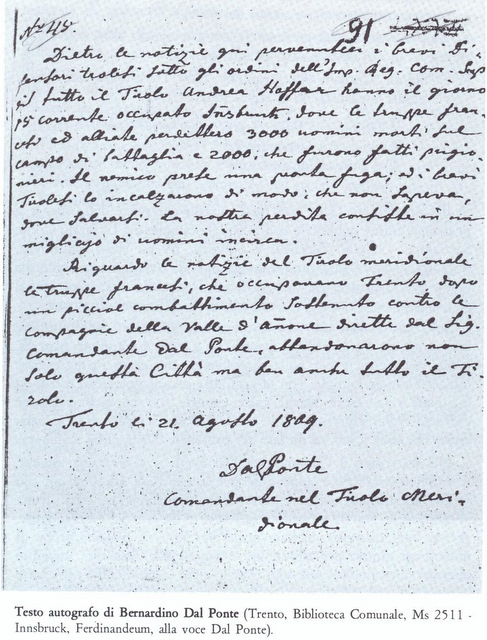 Nro 45.
91
Dietro le notizie qui pervenuteci i bravi Di-
fensori tirolesi sotto gli ordini dell'Imp. Reg. Com. Sup
di tutto il Tirolo Andrea Hoffer hanno il giorno
15 corrente occupato Insbruk, dove le truppe fran-
cesi ed alleate perdettero 3000 uomini morti sul
campo di battaglia e 2000; che furono fatti prigio-
nieri. Il nemico prese una pronta fuga; ed i bravi
Tirolesi lo incalzarono di modo; che non sapeva,
dove salvarsi. La nostra perdita consiste in un
migliajo di uomini incirca.
Riguardo le notizie del Tirolo meridionale
le truppe francesi, che occupavano Trento, dopo
un picciol combattimento sostenuto contro le
compagnie della Valle d'Anone dirette dal Sig.
Comandante Dal Ponte, abbandonarono non
solo questa Città ma ben anche tutto il Ti-
rolo.
Trento li 21 Agosto 1809.
Dal Ponte
Comandante nel Tirolo Meri-
dionale
Testo autografo di Bernardino Dal Ponte (Trento, Biblioteca Comunale, Ms 2511 -
Innsbruck, Ferdinandeum, alla voce Dal Ponte).